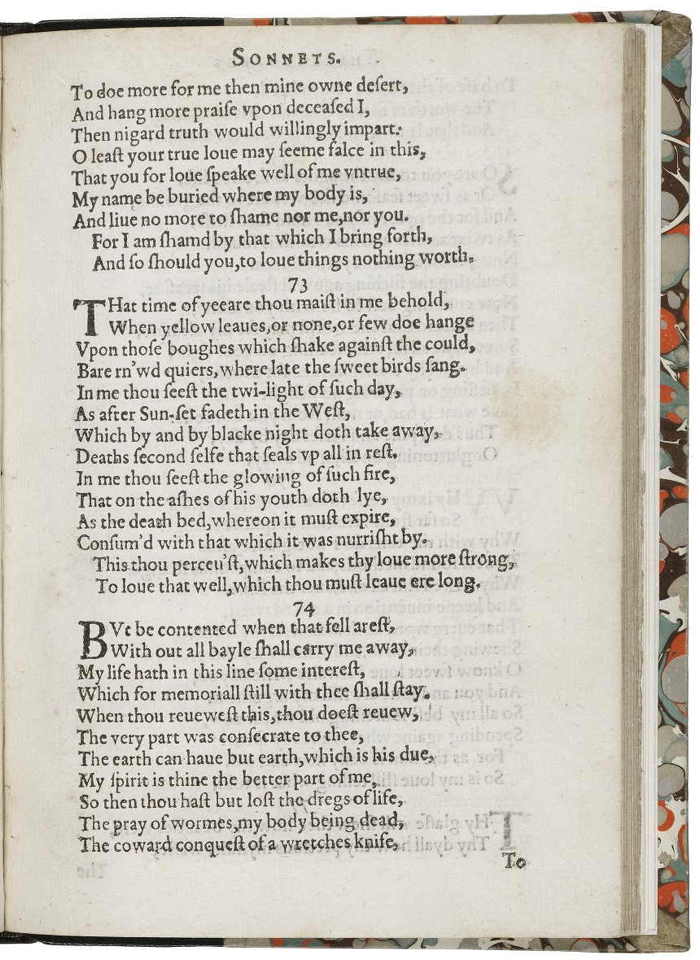 SONNETS.
To doe more for me then mine owne deſert,
And hang more praiſe vpon deceaſed I,
Then nigard truth would willingly impart:
O leaſt your true loue may ſeeme falce in this,
That you for loue ſpeake well of me vntrue,
My name be buried where my body is,
And liue no more to ſhame nor me,nor you.
For I am ſhamd by that which I bring forth,
And ſo ſhould you,to loue things nothing worth.
73
THat time of yeeare thou maiſt in me behold,
When yellow leaues,or none,or few doe hange
Vpon thoſe boughes which ſhake againſt the could,
Bare rn'wd quiers,where late the ſweet birds ſang.
In me thou ſeeſt the twi-light of ſuch day,
As after Sun-ſet fadeth in the Weſt,
Which by and by blacke night doth take away,
Deaths ſecond ſelfe that ſeals vp all in reſt.
In me thou ſeeſt the glowing of ſuch fire,
That on the aſhes of his youth doth lye,
As the death bed,whereon it muſt expire,
Conſum'd with that which it was nurriſht by.
This thou perceu'ſt,which makes thy loue more ſtrong,
To loue that well,which thou muſt leaue ere long.
74
BVt be contented when that fell areſt,
With out all bayle ſhall carry me away,
My life hath in this line ſome intereſt,
Which for memoriall ſtill with thee ſhall ſtay.
When thou reueweſt this,thou doeſt reuew,
The very part was conſecrate to thee,
The earth can haue but earth,which is his due,
My ſpirit is thine the better part of me,
So then thou haſt but loſt the dregs of life,
The pray of wormes,my body being dead,
The coward conqueſt of a wretches knife,
To